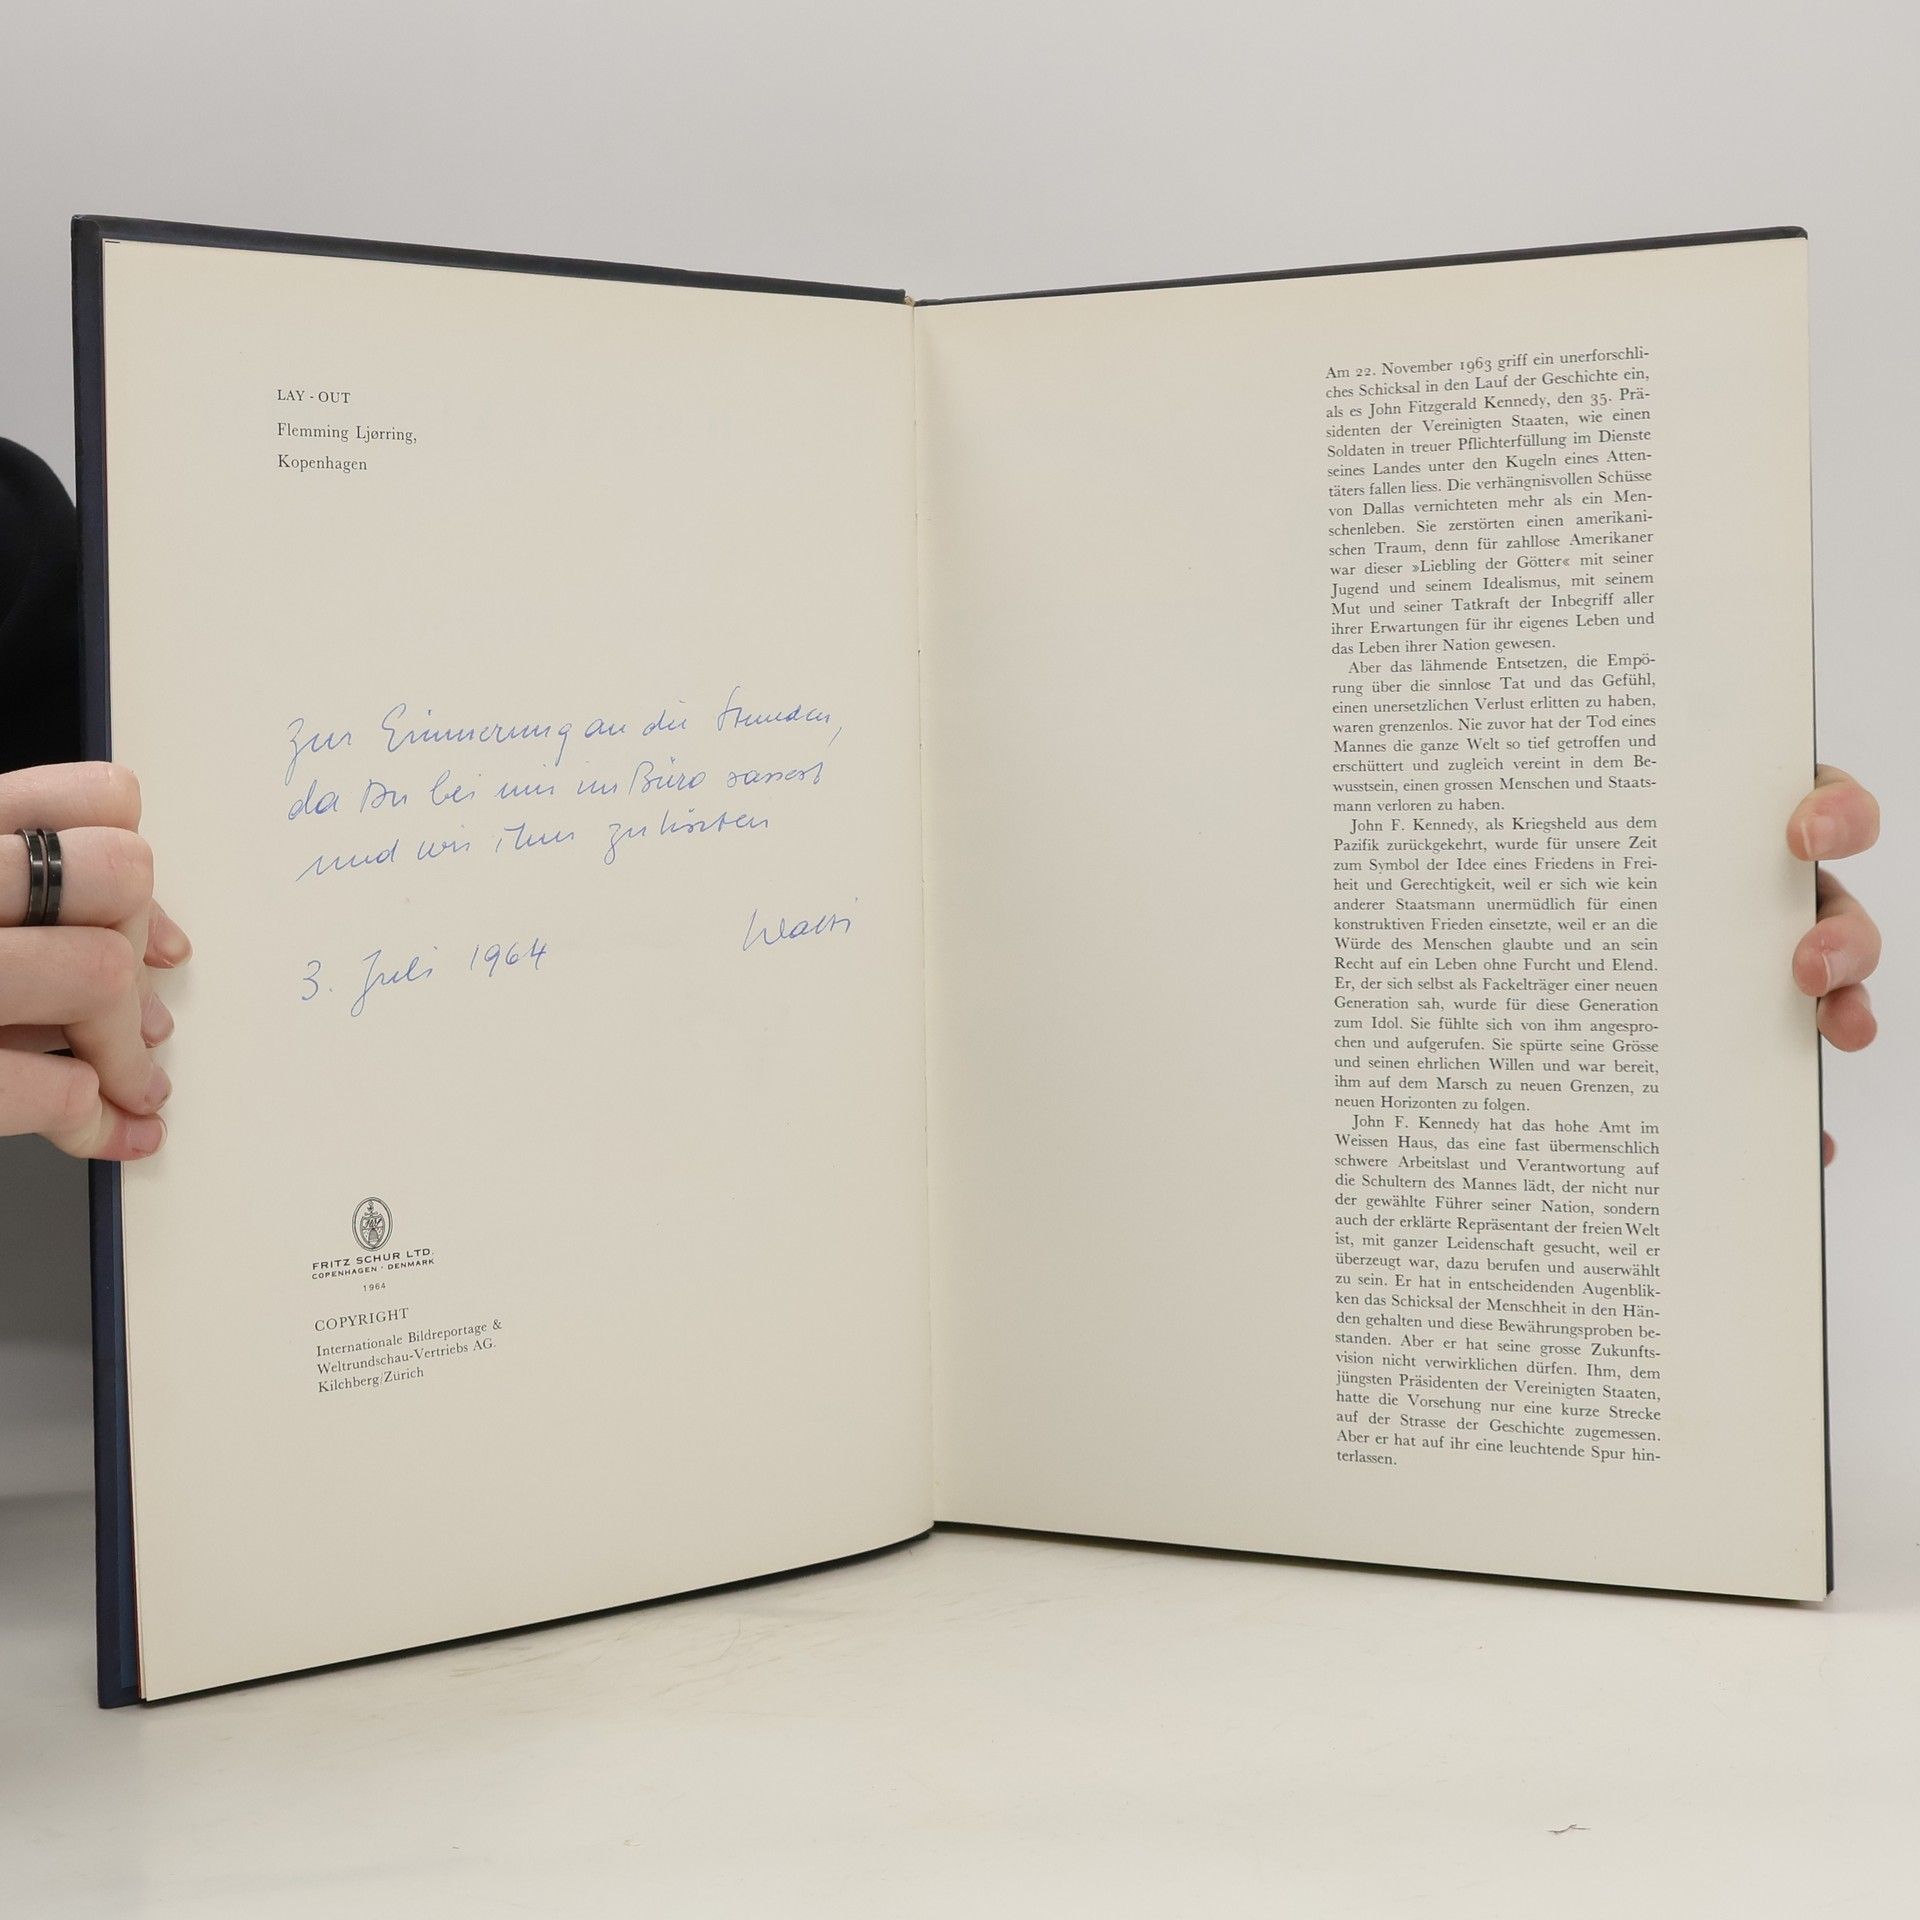 LAY - OUT
Flemming Ljørring,
Kopenhagen
Zur Erinnerung an die Stunden,
da Du bei mir im Büro sassest
und wir ihm zuhörten
Walti
3. Juli 1964
FRITZ SCHUR LTD.
COPENHAGEN · DENMARK
1964
COPYRIGHT
Internationale Bildreportage &
Weltrundschau-Vertriebs AG.
Kilchberg/Zürich
Am 22. November 1963 griff ein unerforschli-
ches Schicksal in den Lauf der Geschichte ein,
als es John Fitzgerald Kennedy, den 35. Prä-
sidenten der Vereinigten Staaten, wie einen
Soldaten in treuer Pflichterfüllung im Dienste
seines Landes unter den Kugeln eines Atten-
täters fallen liess. Die verhängnisvollen Schüsse
von Dallas vernichteten mehr als ein Men-
schenleben. Sie zerstörten einen amerikani-
schen Traum, denn für zahllose Amerikaner
war dieser »Liebling der Götter« mit seiner
Jugend und seinem Idealismus, mit seinem
Mut und seiner Tatkraft der Inbegriff aller
ihrer Erwartungen für ihr eigenes Leben und
das Leben ihrer Nation gewesen.
Aber das lähmende Entsetzen, die Empö-
rung über die sinnlose Tat und das Gefühl,
einen unersetzlichen Verlust erlitten zu haben,
waren grenzenlos. Nie zuvor hat der Tod eines
Mannes die ganze Welt so tief getroffen und
erschüttert und zugleich vereint in dem Be-
wusstsein, einen grossen Menschen und Staats-
mann verloren zu haben.
John F. Kennedy, als Kriegsheld aus dem
Pazifik zurückgekehrt, wurde für unsere Zeit
zum Symbol der Idee eines Friedens in Frei-
heit und Gerechtigkeit, weil er sich wie kein
anderer Staatsmann unermüdlich für einen
konstruktiven Frieden einsetzte, weil er an die
Würde des Menschen glaubte und an sein
Recht auf ein Leben ohne Furcht und Elend.
Er, der sich selbst als Fackelträger einer neuen
Generation sah, wurde für diese Generation
zum Idol. Sie fühlte sich von ihm angespro-
chen und aufgerufen. Sie spürte seine Grösse
und seinen ehrlichen Willen und war bereit,
ihm auf dem Marsch zu neuen Grenzen, zu
neuen Horizonten zu folgen.
John F. Kennedy hat das hohe Amt im
Weissen Haus, das eine fast übermenschlich
schwere Arbeitslast und Verantwortung auf
die Schultern des Mannes lädt, der nicht nur
der gewählte Führer seiner Nation, sondern
auch der erklärte Repräsentant der freien Welt
ist, mit ganzer Leidenschaft gesucht, weil er
überzeugt war, dazu berufen und auserwählt
zu sein. Er hat in entscheidenden Augenblik-
ken das Schicksal der Menschheit in den Hän-
den gehalten und diese Bewährungsproben be-
standen. Aber er hat seine grosse Zukunfts-
vision nicht verwirklichen dürfen. Ihm, dem
jüngsten Präsidenten der Vereinigten Staaten,
hatte die Vorsehung nur eine kurze Strecke
auf der Strasse der Geschichte zugemessen.
Aber er hat auf ihr eine leuchtende Spur hin-
terlassen.